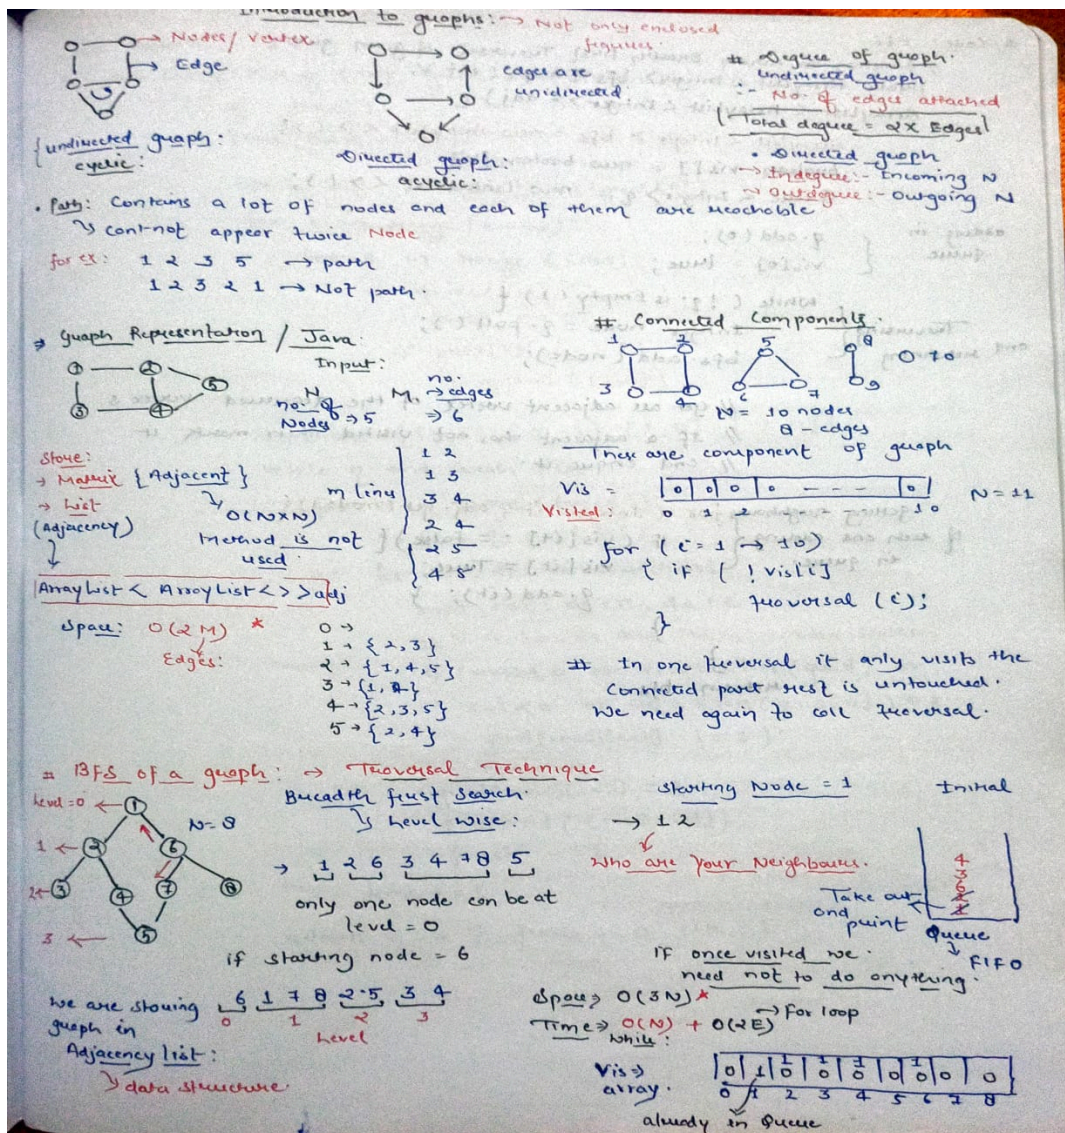 Introduction to graphs: → Not only enclosed
figures.
→ Nodes/ Vertex
→ Edge
edges are
unidirected
{undirected graph:
cyclic:
Directed graph:
acyclic:
# Degree of graph.
undirected graph
:- No. of edges attached
[Total degree = 2x Edges]
• Directed graph
→ Indegree:- Incoming N
→ Outdegree:- Outgoing N
• Path: Contains a lot of nodes and each of them are reachable
↳ cont-not appear twice Node
for ex: 1 2 3 5 → path
1 2 3 2 1 → Not path.
⇒ Graph Representation / Java.
1 2 5
3 4
Input:
N M → no. edges
no. of Nodes → 5 ⇒ 6
m lines
1 2
1 3
3 4
2 4
2 5
4 5
Store:
→ Matrix {Adjacent}
→ List
(Adjacency)
↳ O(N×N)
Method is not
used
ArrayList < ArrayList<> > adj
Space: O(2M) *
Edges:
0 →
1 → {2,3}
2 → {1,4,5}
3 → {1,4}
4 → {2,3,5}
5 → {2,4}
# Connected Components.
1 2 5 8
10
3 4 6 7 9
N = 10 nodes
8 - edges
These are component of graph
Vis =
Visted:
0 0 0 0 - - - 0
0 1 2 10
N = 11
for (i = 1 → 10)
{ if ( ! vis[i]
traversal (i);
}
# In one traversal it only visits the
connected part rest is untouched.
We need again to call traversal.
# BFS of a graph: → Traversal Technique
Breadth first search.
↳ Level wise:
Level = 0 ← 1
N = 8
1 ← 2 6
2 ← 3 4 7 8
3 ← 5
→ 1 2 6 3 4 7 8 5
only one node can be at
level = 0
if starting node = 6
6 1 7 8 2 5 3 4
0 1 2 3
Level
we are storing
graph in
Adjacency list:
↳ data structure.
starting Node = 1
→ 1 2
Who are your Neighbours.
Initial
4
3
6
2
1
Take out
and
print
Queue
↓
FIFO
if once visited we.
need not to do anything.
Space ⇒ O(3N) *
Time ⇒ O(N) + O(2E) → For loop
while:
Vis ⇒
array.
0 1 1 1 1 0 1 0 0
0 0 0 0
0 1 2 3 4 5 6 7 8
already in Queue